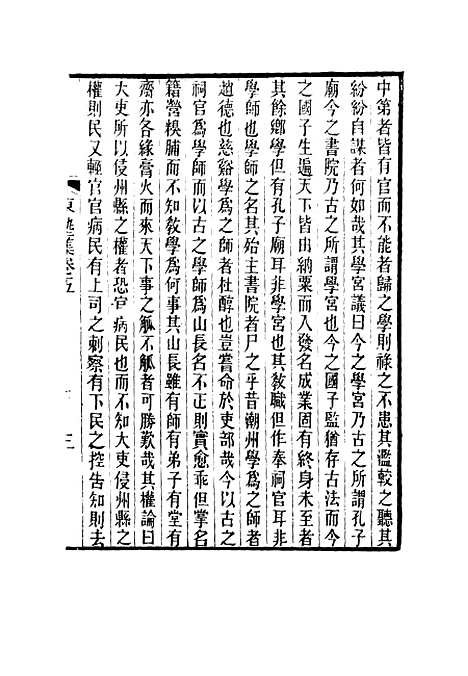 中第者皆有官而不能者歸之學則祿之不患其濫較之聽其
紛紛自謀者何如哉其學宮議曰今之學宮乃古之所謂孔子
廟今之書院乃古之所謂學宮也今之國子監猶存古法而今
之國子生遍天下皆出納粟而入發名成業固有終身未至者
其餘鄉學但有孔子廟耳非學宮也其教職但作奉祠官耳非
學師也學師之名其殆主書院者尸之乎昔潮州學爲之師者
趙德也慈谿學爲之師者杜醇也豈嘗命於吏部哉今以古之
祠官爲學師而以古之學師爲山長名不正則實愈乖但掌名
籍營糗脯而不知敎學爲何事其山長雖有師有弟子有堂有
齋亦各緣膏火而來天下事之觚不觚者可勝歎哉其權論曰
大吏所以侵州縣之權者恐官病民也而不知大吏侵州縣之
權則民又輕官官病民有上司之刺察有下民之控告知則去
集卷五
三